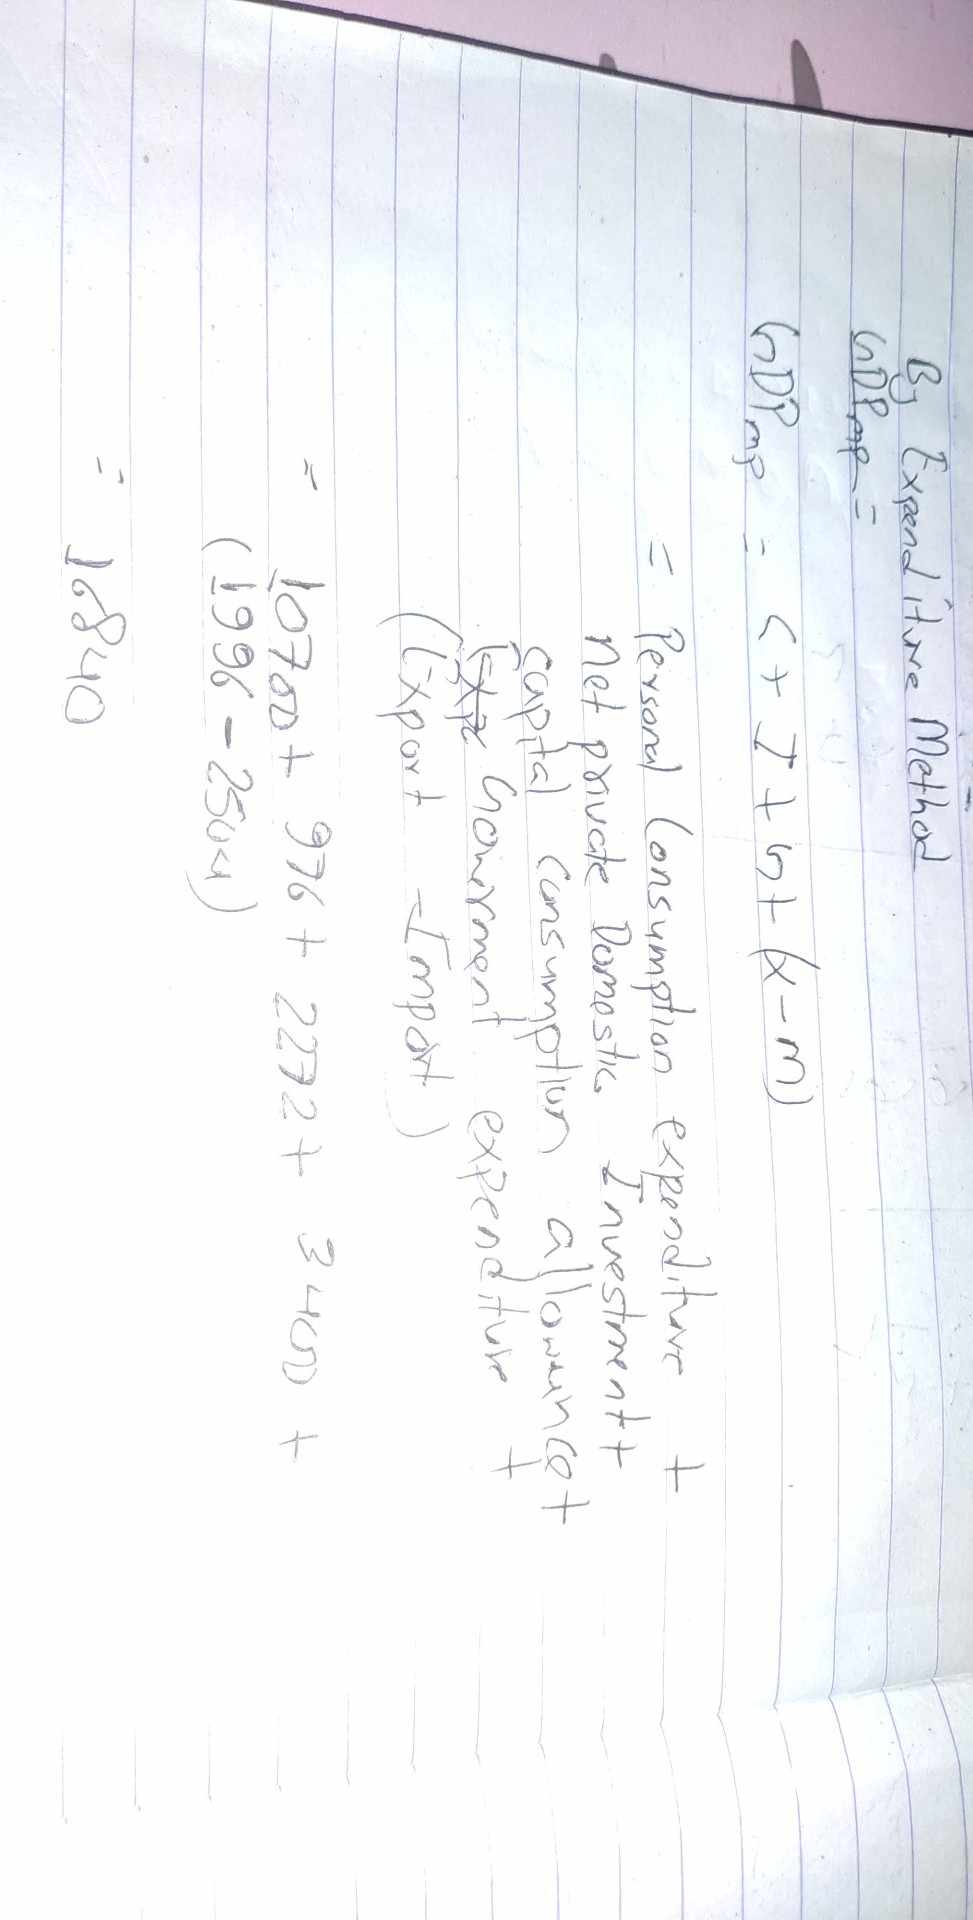 By Expenditure Method
GDPmp =
GDPmp = C + I + G + (x - m)
= Personal Consumption expenditure +
net private Domestic Investment +
capital Consumption allowance +
Government expenditure +
(Export - Import)
= 10700 + 976 + 2272 + 3400 +
(1996 - 2504)
= 16840